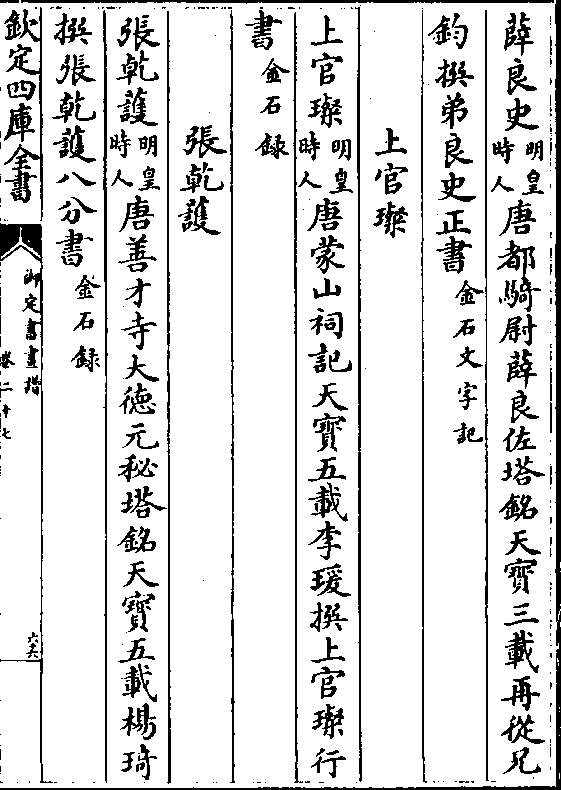 薛良史明皇時人唐都騎尉薛良佐塔銘天寶三載再從兄
鈞撰弟良史正書金石文字記
上官璨
上官璨明皇時人唐蒙山祠記天寶五載李瑗撰上官璨行
書金石録
張乾䕶
張乾䕶明皇時人唐善才寺大徳元秘塔銘天寶五載楊琦
撰張乾䕶八分書金石録
欽定四庫全書
御定書畫譜
卷二十七
六六